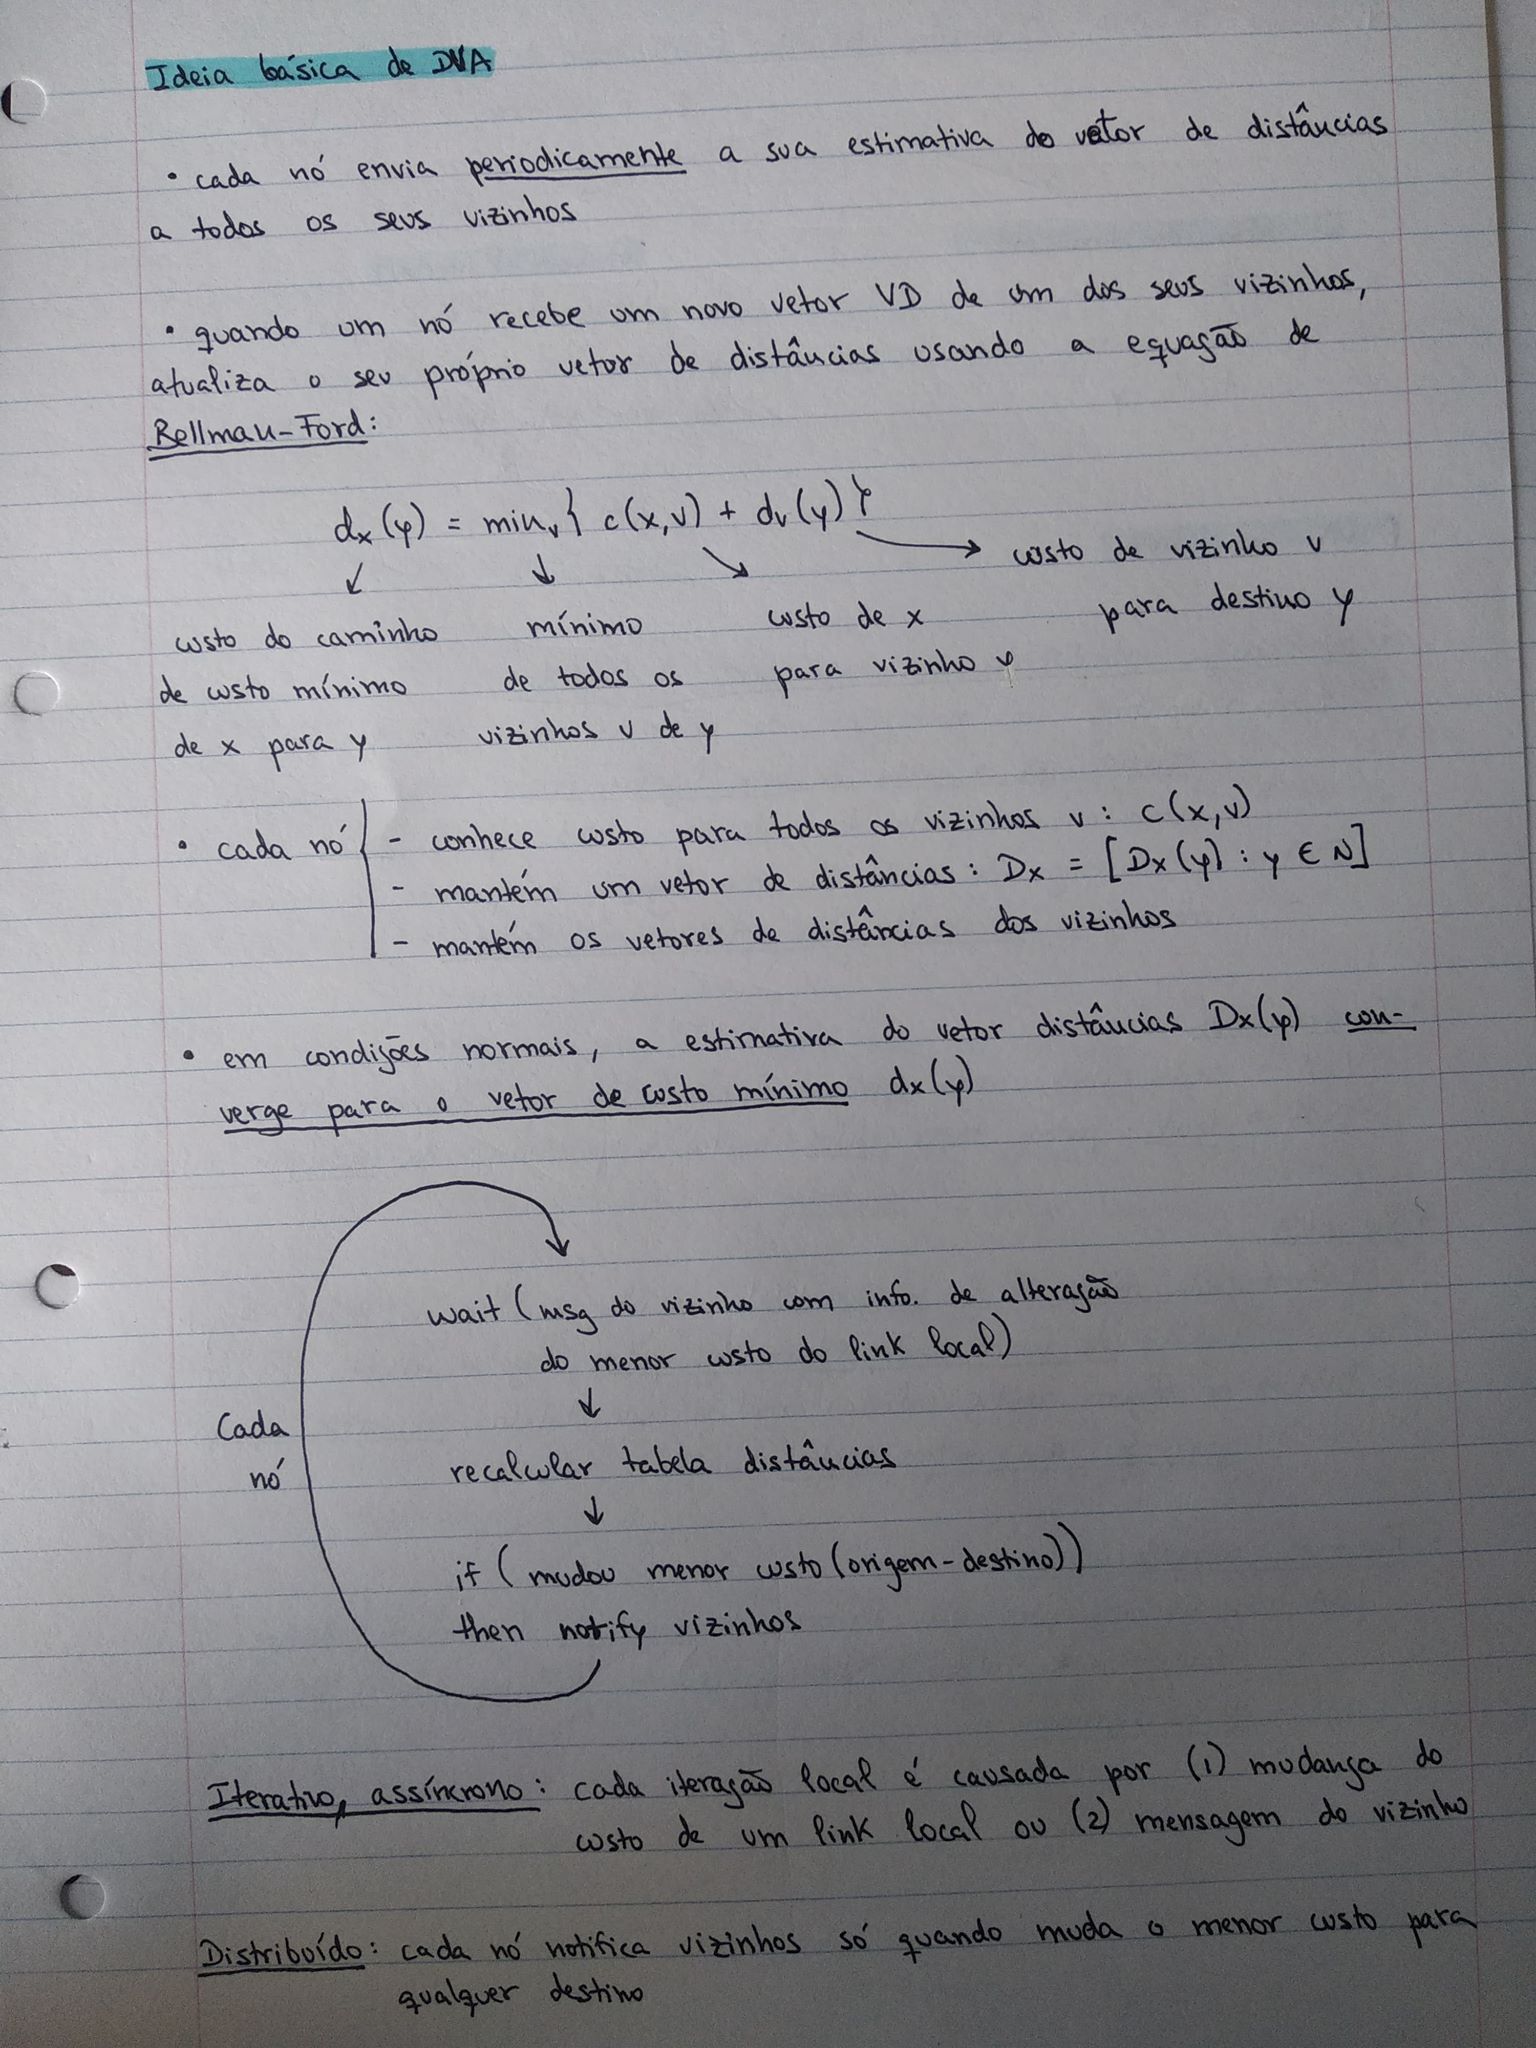 Ideia básica de DVA
• cada nó envia periodicamente a sua estimativa do vetor de distâncias
a todos os seus vizinhos
• quando um nó recebe um novo vetor VD de um dos seus vizinhos,
atualiza o seu próprio vetor de distâncias usando a equação de
Bellman-Ford:
dx(y) = minv{ c(x,v) + dv(y)}
custo do caminho
de custo mínimo
de x para y
mínimo
de todos os
vizinhos v de y
custo de x
para vizinho v
custo de vizinho v
para destino y
• cada nó
- conhece custo para todos os vizinhos v : c(x,v)
- mantém um vetor de distâncias : Dx = [Dx(y) : y ∈ N]
- mantém os vetores de distâncias dos vizinhos
• em condições normais, a estimativa do vetor distâncias Dx(y) con-
verge para o vetor de custo mínimo dx(y)
Cada
nó
wait (msg do vizinho com info. de alteração
do menor custo do link local)
↓
recalcular tabela distâncias
↓
if (mudou menor custo (origem-destino))
then notify vizinhos
Iterativo, assíncrono : cada iteração local é causada por (1) mudança do
custo de um link local ou (2) mensagem do vizinho
Distribuído : cada nó notifica vizinhos só quando muda o menor custo para
qualquer destino